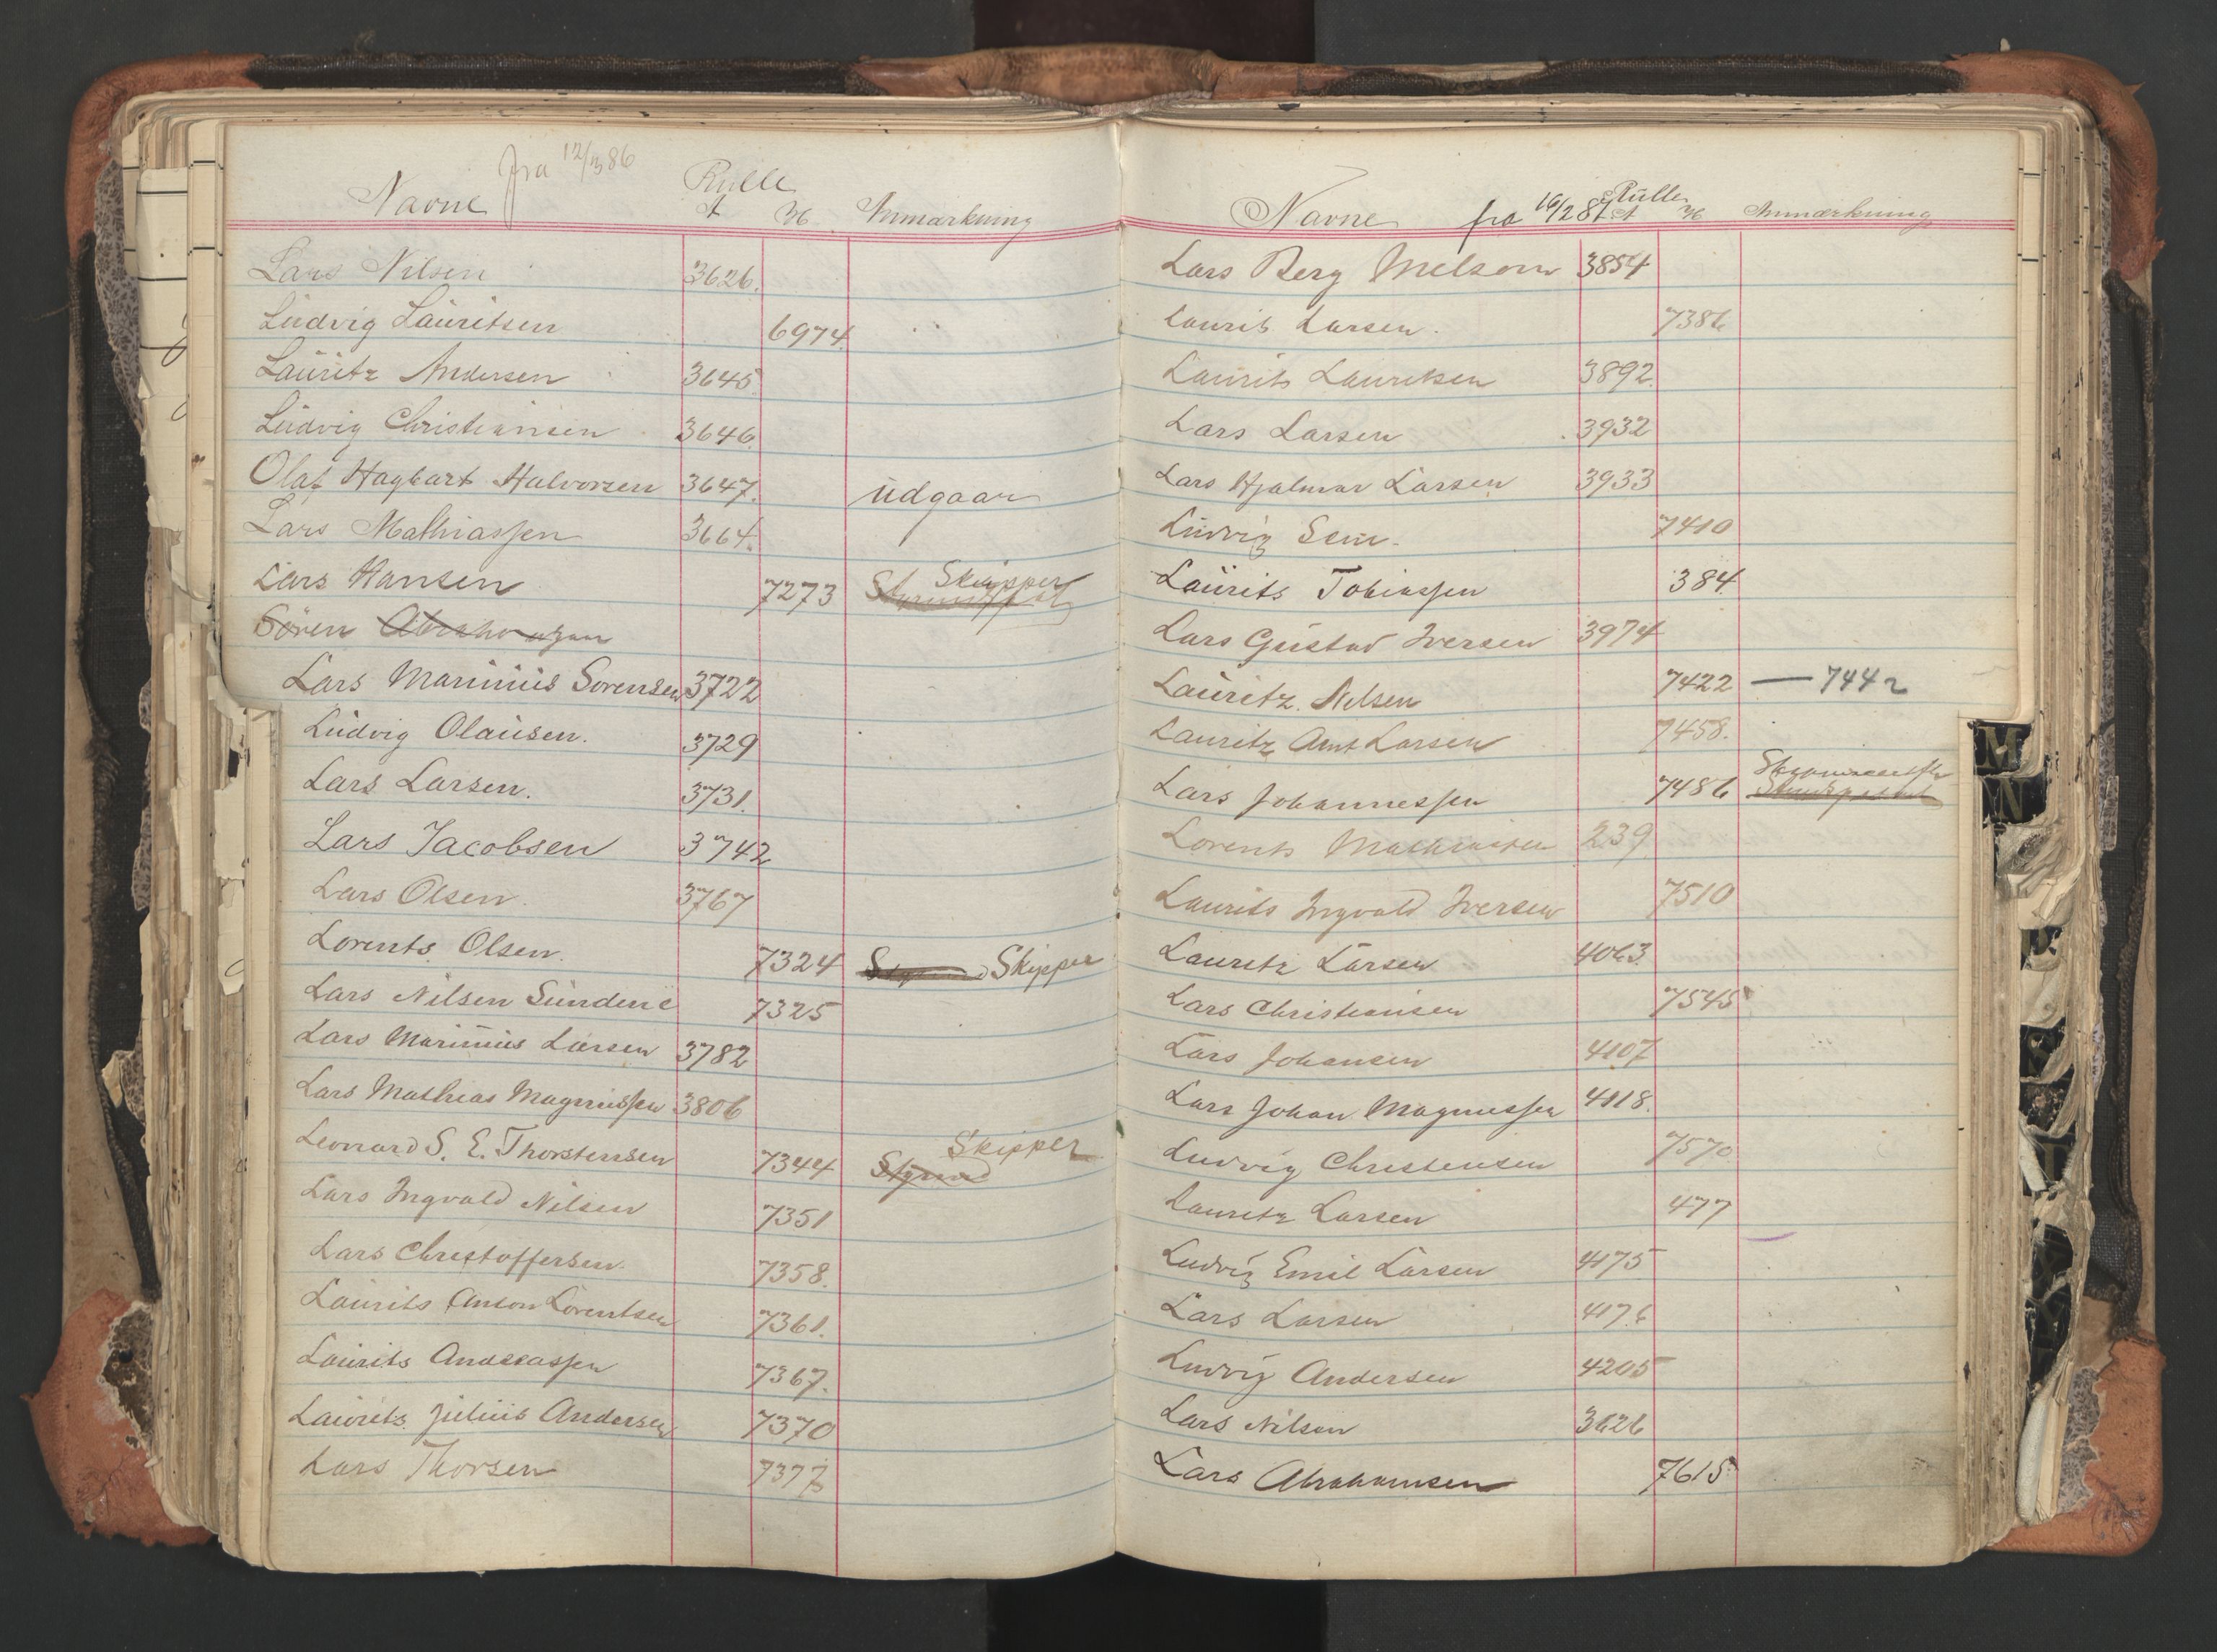 fra 12/3 86
Navne Rulle A H Anmærkning
Lars Nilsen 3626.
Ludvig Lauritsen 6974
Lauritz Andersen 3645
Ludvig Christiansen 3646
Olaf Hagbart Halvorsen 3647. udgaar
Lars Mathiassen 3664.
Lars Hansen 7273 Skipper
Sören Abrahamsen
Lars Marinius Sorensen 3722
Ludvig Olausen. 3729
Lars Larsen. 3731.
Lars Jacobsen 3742
Lars Olsen. 3767
Lorents Olsen. 7324 Skipper
Lars Nilsen Sundene 7325
Lars Marinius Larsen 3782
Lars Mathias Magnussen 3806
Leonard S. E. Thorstensen 7344 Styrm Skipper
Lars Ingvald Nilsen 7351
Lars Christoffersen. 7358.
Laurits Anton Lorentsen 7361.
Laurits Andreassen 7367.
Laurits Julius Andersen 7370
Lars Thorsen 7377
Navne fra 16/2 87 Rulle A H Anmærkning
Lars Berg Melsom 3854
Laurits Larsen. 7386
Laurits Lauritsen 3892.
Lars Larsen 3932
Lars Hjalmar Larsen 3933
Ludvig Sem. 7410
Laurits Tobiassen 384.
Lars Gustav Iversen 3974
Lauritz Nilsen 7422 — 7442
Lauritz Amt Larsen 7458.
Lars Johannessen 7486
Lorents 239
Laurits Ingvald Iversen 7510
Lauritz Larsen 4063
Lars Christiansen 7545
Lars Johansen 4107
Lars Johan Magnussen 4118.
Ludvig Christensen 7570
Lauritz Larsen 477
Ludvig Emil Larsen 4175
Lars Larsen 4176
Ludvig Andersen 4205
Lars Nilsen 3626
Lars Abrahamsen 7615